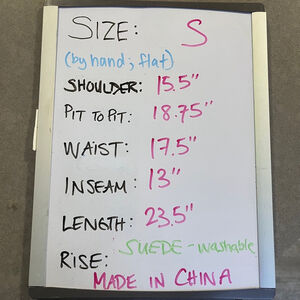 SIZE: S
(by hand; flat)
SHOULDER: 15.5"
PIT TO PIT: 18.75"
WAIST: 17.5"
INSEAM: 13"
LENGTH: 23.5"
SUEDE - washable
RISE:
MADE IN CHINA